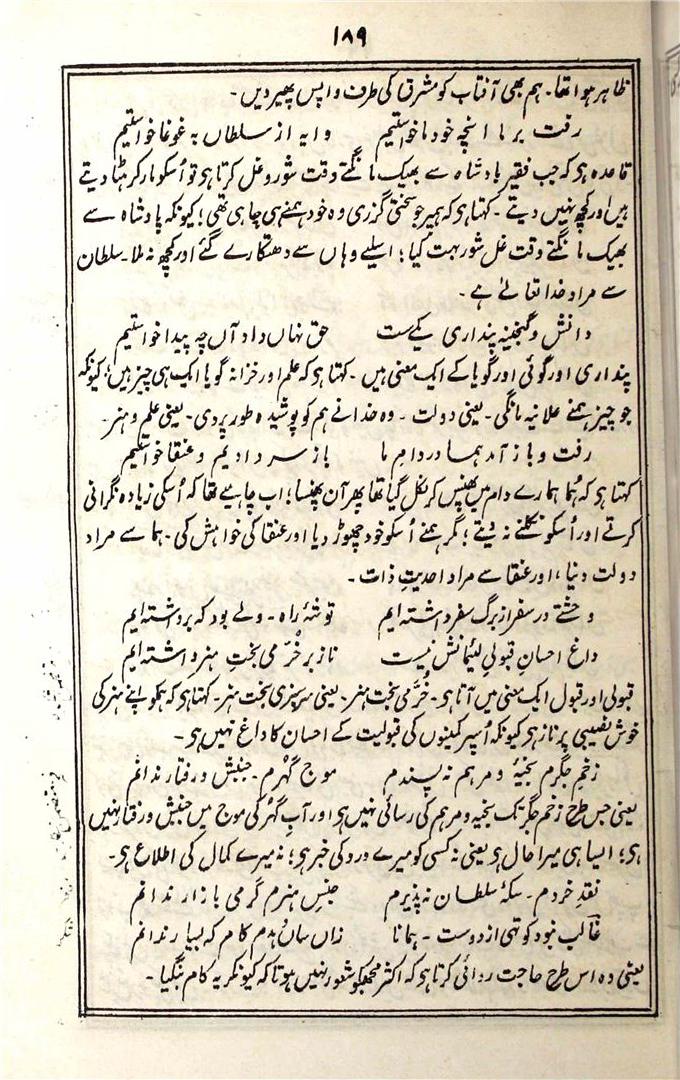 ۱۸۹
ظاہر ہوا تھا۔ ہم بھی آفتاب کو مشرق کی طرف واپس پھیر دیں۔
رفت بر ما انچہ خود ما خواستیم وایہ از سلطاں بہ غوغا خواستیم
قاعدہ ہی کہ جب فقیر بادشاہ سے بھیک مانگتے وقت شور و غل کرتا ہی تو اُسکو مار کر ہٹا دیتے
ہیں اور کچھ نہیں دیتے۔ کہتا ہی کہ ہمپر جو سختی گزری وہ خود ہمنے ہی چاہی تھی؛ کیونکہ پادشاہ سے
بھیک مانگتے وقت غل شور بہت کیا؛ اسلیے وہاں سے دھتکارے گئے اور کچھ نہ ملا۔ سلطان
سے مراد خدا تعالےٰ ہے۔
دانش و گنجینہ پنداری یکے ست حق نہاں داد آں چہ پیدا خواستیم
پنداری اور گوئی اور گویا کے ایک معنی ہیں۔ کہتا ہی کہ علم اور خزانہ گویا ایک ہی چیز ہیں؛ کیونکہ
جو چیز ہمنے علانیہ مانگی۔ یعنی دولت۔ وہ خدا نے ہم کو پوشیدہ طور پر دی۔ یعنی علم و ہنر۔
رفت و باز آمد ہما در دامِ ما باز سر دادیم و عنقا خواستیم
کہتا ہی کہ ہُما ہمارے دام میں پھنس کر نکل گیا تھا پھر آن پھنسا؛ اب چاہیے تھا کہ اُسکی زیادہ نگرانی
کرتے اور اُسکو نکلنے نہ دیتے؛ مگر ہمنے اُسکو خود چھوڑ دیا اور عنقا کی خواہش کی۔ ہما سے مراد
دولت دنیا، اور عنقا سے مراد احدیتِ ذات۔
وحشتے در سفر از برگ سفر داشتہ ایم توشۂ راہ۔ دلے بود کہ برداشتہ ایم
داغ احسانِ قبولی لئیمانش نیست ناز بر خُرّمیِ بختِ ہنر داشتہ ایم
قبولی اور قبول ایک معنی میں آتا ہی۔ خُرّمیِ بخت ہنر۔ یعنی سرسبزی بخت ہنر۔ کہتا ہی کہ ہمکو اپنے ہنر کی
خوش نصیبی پر ناز ہی کیونکہ اُسپر کمینوں کی قبولیت کے احسان کا داغ نہیں ہی۔
زخمِ جگرم بخیۂ و مرہم نہ پسندم موج گہرم۔ جنبش و رفتار ندانم
یعنی جس طرح زخم جگر تک بخیہ و مرہم کی رسائی نہیں ہی اور آبِ گہر کی موج میں جنبش و رفتار نہیں
ہی؛ ایسا ہی میرا حال ہی یعنی نہ کسی کو میرے درد کی خبر ہی؛ نہ میرے کمال کی اطلاع ہی۔
نقدِ خردم۔ سکۂ سلطان نہ پذیرم جنسِ ہنرم گرمی بازار ندانم
غالب نبود کوتہی از دوست۔ ہمانا زاں ساں دہدم کام کہ بسیار ندانم
یعنی وہ اس طرح حاجت روائی کرتا ہی کہ اکثر مجھکو شعور نہیں ہوتا کہ کیونکر یہ کام بنگیا۔